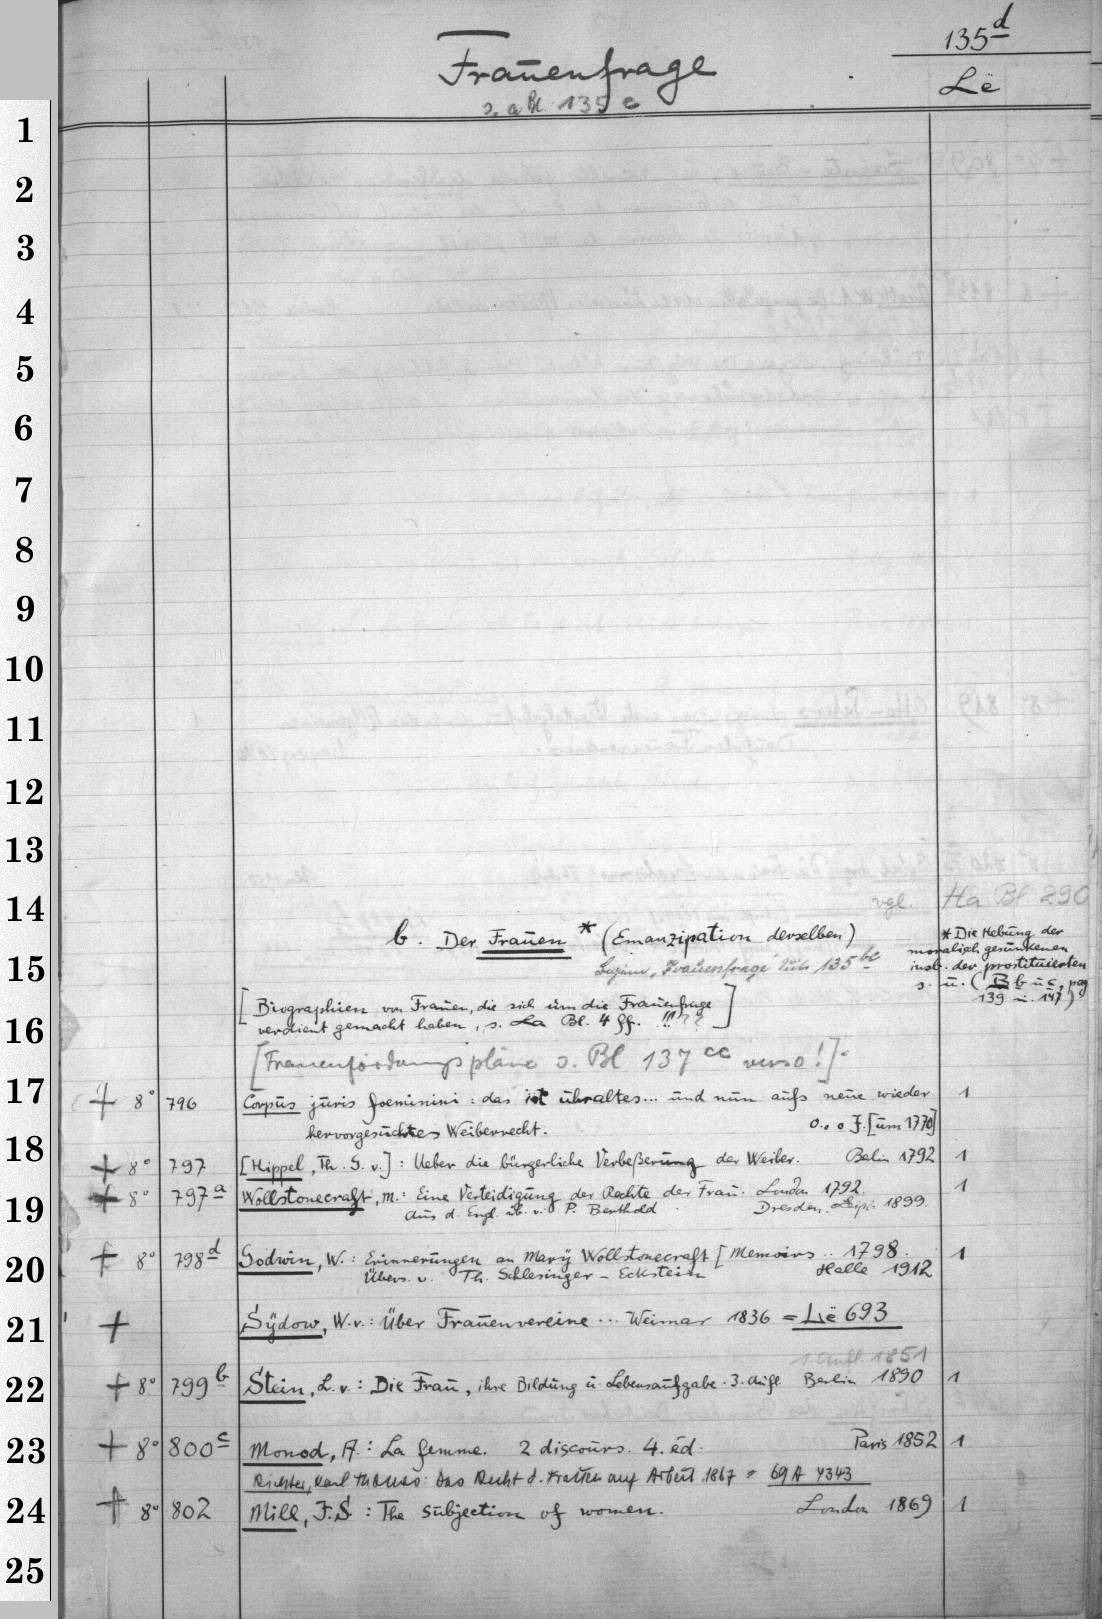 135d
Frauenfrage
Lë
s. a Bl. 135 c
1
2
3
4
5
6
7
8
9
10
11
12
13
14
vgl. Ha Bl 290
b. Der Frauen * (Emanzipation derselben)
* Die Hebung der
moralisch gesunkenen
insb. der prostituierten
s. u. (B b u c, pag
139 u. 147)
15
"Frauenfrage" 135 bc
[Biographien von Frauen, die sich um die Frauenfrage
verdient gemacht haben, s. La Bl. 4 ff. !!! ??]
16
[Frauenförderungspläne s. Bl 137 cc verso!]
17
+ 8° 796 Corpus juris foeminini: das ist uhraltes... und nun aufs neue wieder 1
hervorgesuchtes Weiberrecht. o. O. J. [um 1770]
18
+ 8° 797 [Hippel, Th. G. v.]: Ueber die bürgerliche Verbeßerung der Weiber. Berlin 1792 1
+ 8° 797a Wollstonecraft, M.: Eine Verteidigung der Rechte der Frau. London 1792. 1
19
Aus d. Engl. üb. v. P. Berthold Dresden, Leipz. 1899.
+ 8° 798d Godwin, W.: Erinnerungen an Mary Wollstonecraft [Memoirs .. 1798. 1
20
Übers. v. Th. Schlesinger-Eckstein Halle 1912
21
+ Sydow, W. v.: Über Frauenvereine ... Weimar 1836 = Lë 693
1 Aufl. 1851
22
+ 8° 799b Stein, L. v.: Die Frau, ihre Bildung u. Lebensaufgabe. 3. Aufl. Berlin 1890 1
23
+ 8° 800c Monod, A.: La femme. 2 discours. 4. éd. Paris 1852 1
Richter, Karl Thomas: Das Recht d. Frauen auf Arbeit 1867 = 69 A 4343
24
+ 8° 802 Mill, J. S.: The subjection of women. London 1869 1
25